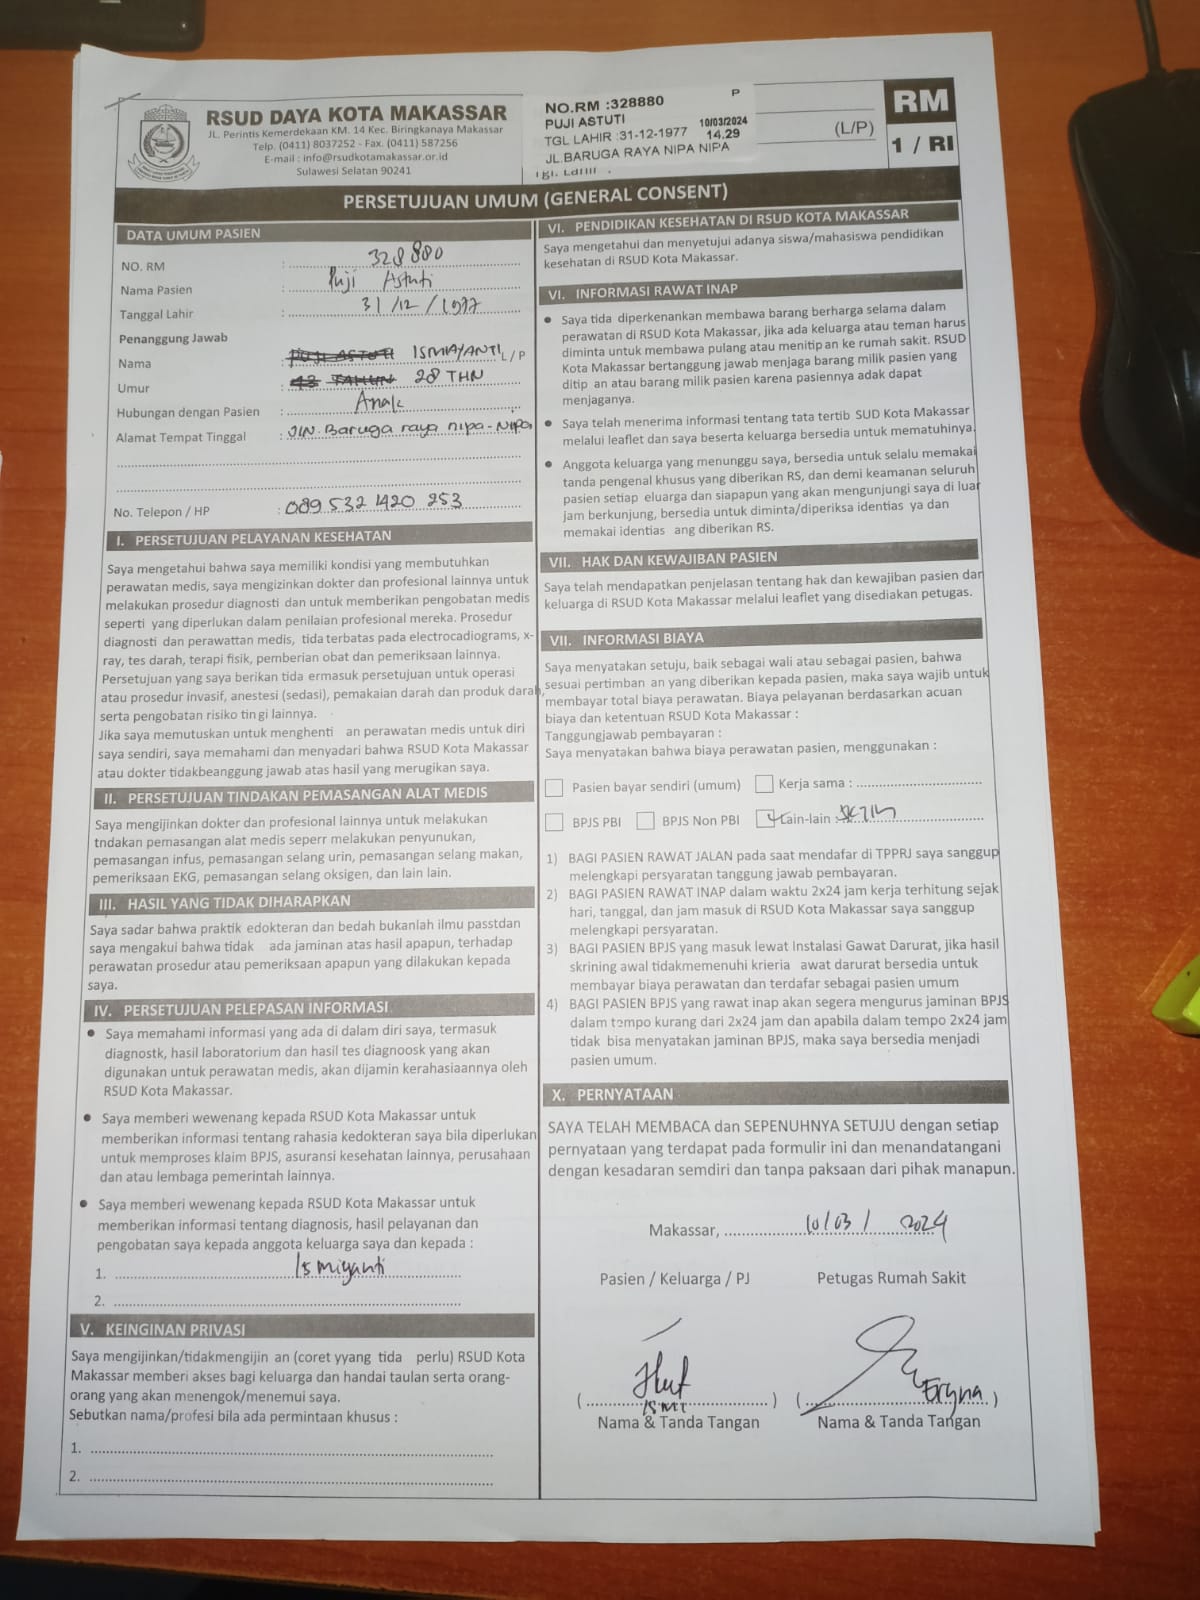 RSUD DAYA KOTA MAKASSAR
JL. Perintis Kemerdekaan KM. 14 Kec. Biringkanaya Makassar
Telp. (0411) 8037252 - Fax. (0411) 587256
E-mail : info@rsudkotamakassar.or.id
Sulawesi Selatan 90241
NO.RM :328880 P
PUJI ASTUTI 10/03/2024
TGL LAHIR :31-12-1977 14.29
JL.BARUGA RAYA NIPA NIPA
(L/P)
RM
1 / RI
PERSETUJUAN UMUM (GENERAL CONSENT)
DATA UMUM PASIEN
NO. RM : 328880
Nama Pasien : Puji Astuti
Tanggal Lahir : 31/12/1977
Penanggung Jawab
Nama : PUJI ASTUTI ISMIAYANTI L/P
Umur : 43 TAHUN 28 THN
Hubungan dengan Pasien : Anak
Alamat Tempat Tinggal : JLN. Baruga raya nipa-nipa
No. Telepon / HP : 089 532 1420 253
I. PERSETUJUAN PELAYANAN KESEHATAN
Saya mengetahui bahwa saya memiliki kondisi yang membutuhkan
perawatan medis, saya mengizinkan dokter dan profesional lainnya untuk
melakukan prosedur diagnosti dan untuk memberikan pengobatan medis
seperti yang diperlukan dalam penilaian profesional mereka. Prosedur
diagnosti dan perawattan medis, tida terbatas pada electrocadiograms, x-
ray, tes darah, terapi fisik, pemberian obat dan pemeriksaan lainnya.
Persetujuan yang saya berikan tida ermasuk persetujuan untuk operasi
atau prosedur invasif, anestesi (sedasi), pemakaian darah dan produk darah,
serta pengobatan risiko tin gi lainnya.
Jika saya memutuskan untuk menghenti an perawatan medis untuk diri
saya sendiri, saya memahami dan menyadari bahwa RSUD Kota Makassar
atau dokter tidakbeanggung jawab atas hasil yang merugikan saya.
II. PERSETUJUAN TINDAKAN PEMASANGAN ALAT MEDIS
Saya mengijinkan dokter dan profesional lainnya untuk melakukan
tndakan pemasangan alat medis seperr melakukan penyunukan,
pemasangan infus, pemasangan selang urin, pemasangan selang makan,
pemeriksaan EKG, pemasangan selang oksigen, dan lain lain.
III. HASIL YANG TIDAK DIHARAPKAN
Saya sadar bahwa praktik edokteran dan bedah bukanlah ilmu passtdan
saya mengakui bahwa tidak ada jaminan atas hasil apapun, terhadap
perawatan prosedur atau pemeriksaan apapun yang dilakukan kepada
saya.
IV. PERSETUJUAN PELEPASAN INFORMASI
• Saya memahami informasi yang ada di dalam diri saya, termasuk
diagnostk, hasil laboratorium dan hasil tes diagnoosk yang akan
digunakan untuk perawatan medis, akan dijamin kerahasiaannya oleh
RSUD Kota Makassar.
• Saya memberi wewenang kepada RSUD Kota Makassar untuk
memberikan informasi tentang rahasia kedokteran saya bila diperlukan
untuk memproses klaim BPJS, asuransi kesehatan lainnya, perusahaan
dan atau lembaga pemerintah lainnya.
• Saya memberi wewenang kepada RSUD Kota Makassar untuk
memberikan informasi tentang diagnosis, hasil pelayanan dan
pengobatan saya kepada anggota keluarga saya dan kepada :
1. Ismiyanti
2.
V. KEINGINAN PRIVASI
Saya mengijinkan/tidakmengijin an (coret yyang tida perlu) RSUD Kota
Makassar memberi akses bagi keluarga dan handai taulan serta orang-
orang yang akan menengok/menemui saya.
Sebutkan nama/profesi bila ada permintaan khusus :
1.
2.
VI. PENDIDIKAN KESEHATAN DI RSUD KOTA MAKASSAR
Saya mengetahui dan menyetujui adanya siswa/mahasiswa pendidikan
kesehatan di RSUD Kota Makassar.
VI. INFORMASI RAWAT INAP
• Saya tida diperkenankan membawa barang berharga selama dalam
perawatan di RSUD Kota Makassar, jika ada keluarga atau teman harus
diminta untuk membawa pulang atau menitip an ke rumah sakit. RSUD
Kota Makassar bertanggung jawab menjaga barang milik pasien yang
ditip an atau barang milik pasien karena pasiennya adak dapat
menjaganya.
• Saya telah menerima informasi tentang tata tertib SUD Kota Makassar
melalui leaflet dan saya beserta keluarga bersedia untuk mematuhinya.
• Anggota keluarga yang menunggu saya, bersedia untuk selalu memakai
tanda pengenal khusus yang diberikan RS, dan demi keamanan seluruh
pasien setiap eluarga dan siapapun yang akan mengunjungi saya di luar
jam berkunjung, bersedia untuk diminta/diperiksa identias ya dan
memakai identias ang diberikan RS.
VII. HAK DAN KEWAJIBAN PASIEN
Saya telah mendapatkan penjelasan tentang hak dan kewajiban pasien dan
keluarga di RSUD Kota Makassar melalui leaflet yang disediakan petugas.
VII. INFORMASI BIAYA
Saya menyatakan setuju, baik sebagai wali atau sebagai pasien, bahwa
sesuai pertimban an yang diberikan kepada pasien, maka saya wajib untuk
membayar total biaya perawatan. Biaya pelayanan berdasarkan acuan
biaya dan ketentuan RSUD Kota Makassar :
Tanggungjawab pembayaran :
Saya menyatakan bahwa biaya perawatan pasien, menggunakan :
Pasien bayar sendiri (umum) Kerja sama :
BPJS PBI BPJS Non PBI Lain-lain :
1) BAGI PASIEN RAWAT JALAN pada saat mendafar di TPPRJ saya sanggup
melengkapi persyaratan tanggung jawab pembayaran.
2) BAGI PASIEN RAWAT INAP dalam waktu 2x24 jam kerja terhitung sejak
hari, tanggal, dan jam masuk di RSUD Kota Makassar saya sanggup
melengkapi persyaratan.
3) BAGI PASIEN BPJS yang masuk lewat Instalasi Gawat Darurat, jika hasil
skrining awal tidakmemenuhi krieria awat darurat bersedia untuk
membayar biaya perawatan dan terdafar sebagai pasien umum
4) BAGI PASIEN BPJS yang rawat inap akan segera mengurus jaminan BPJS
dalam tempo kurang dari 2x24 jam dan apabila dalam tempo 2x24 jam
tidak bisa menyatakan jaminan BPJS, maka saya bersedia menjadi
pasien umum.
X. PERNYATAAN
SAYA TELAH MEMBACA dan SEPENUHNYA SETUJU dengan setiap
pernyataan yang terdapat pada formulir ini dan menandatangani
dengan kesadaran semdiri dan tanpa paksaan dari pihak manapun.
Makassar, 10/03/ 2024
Pasien / Keluarga / PJ Petugas Rumah Sakit
( ISMI ) ( Eryna )
Nama & Tanda Tangan Nama & Tanda Tangan